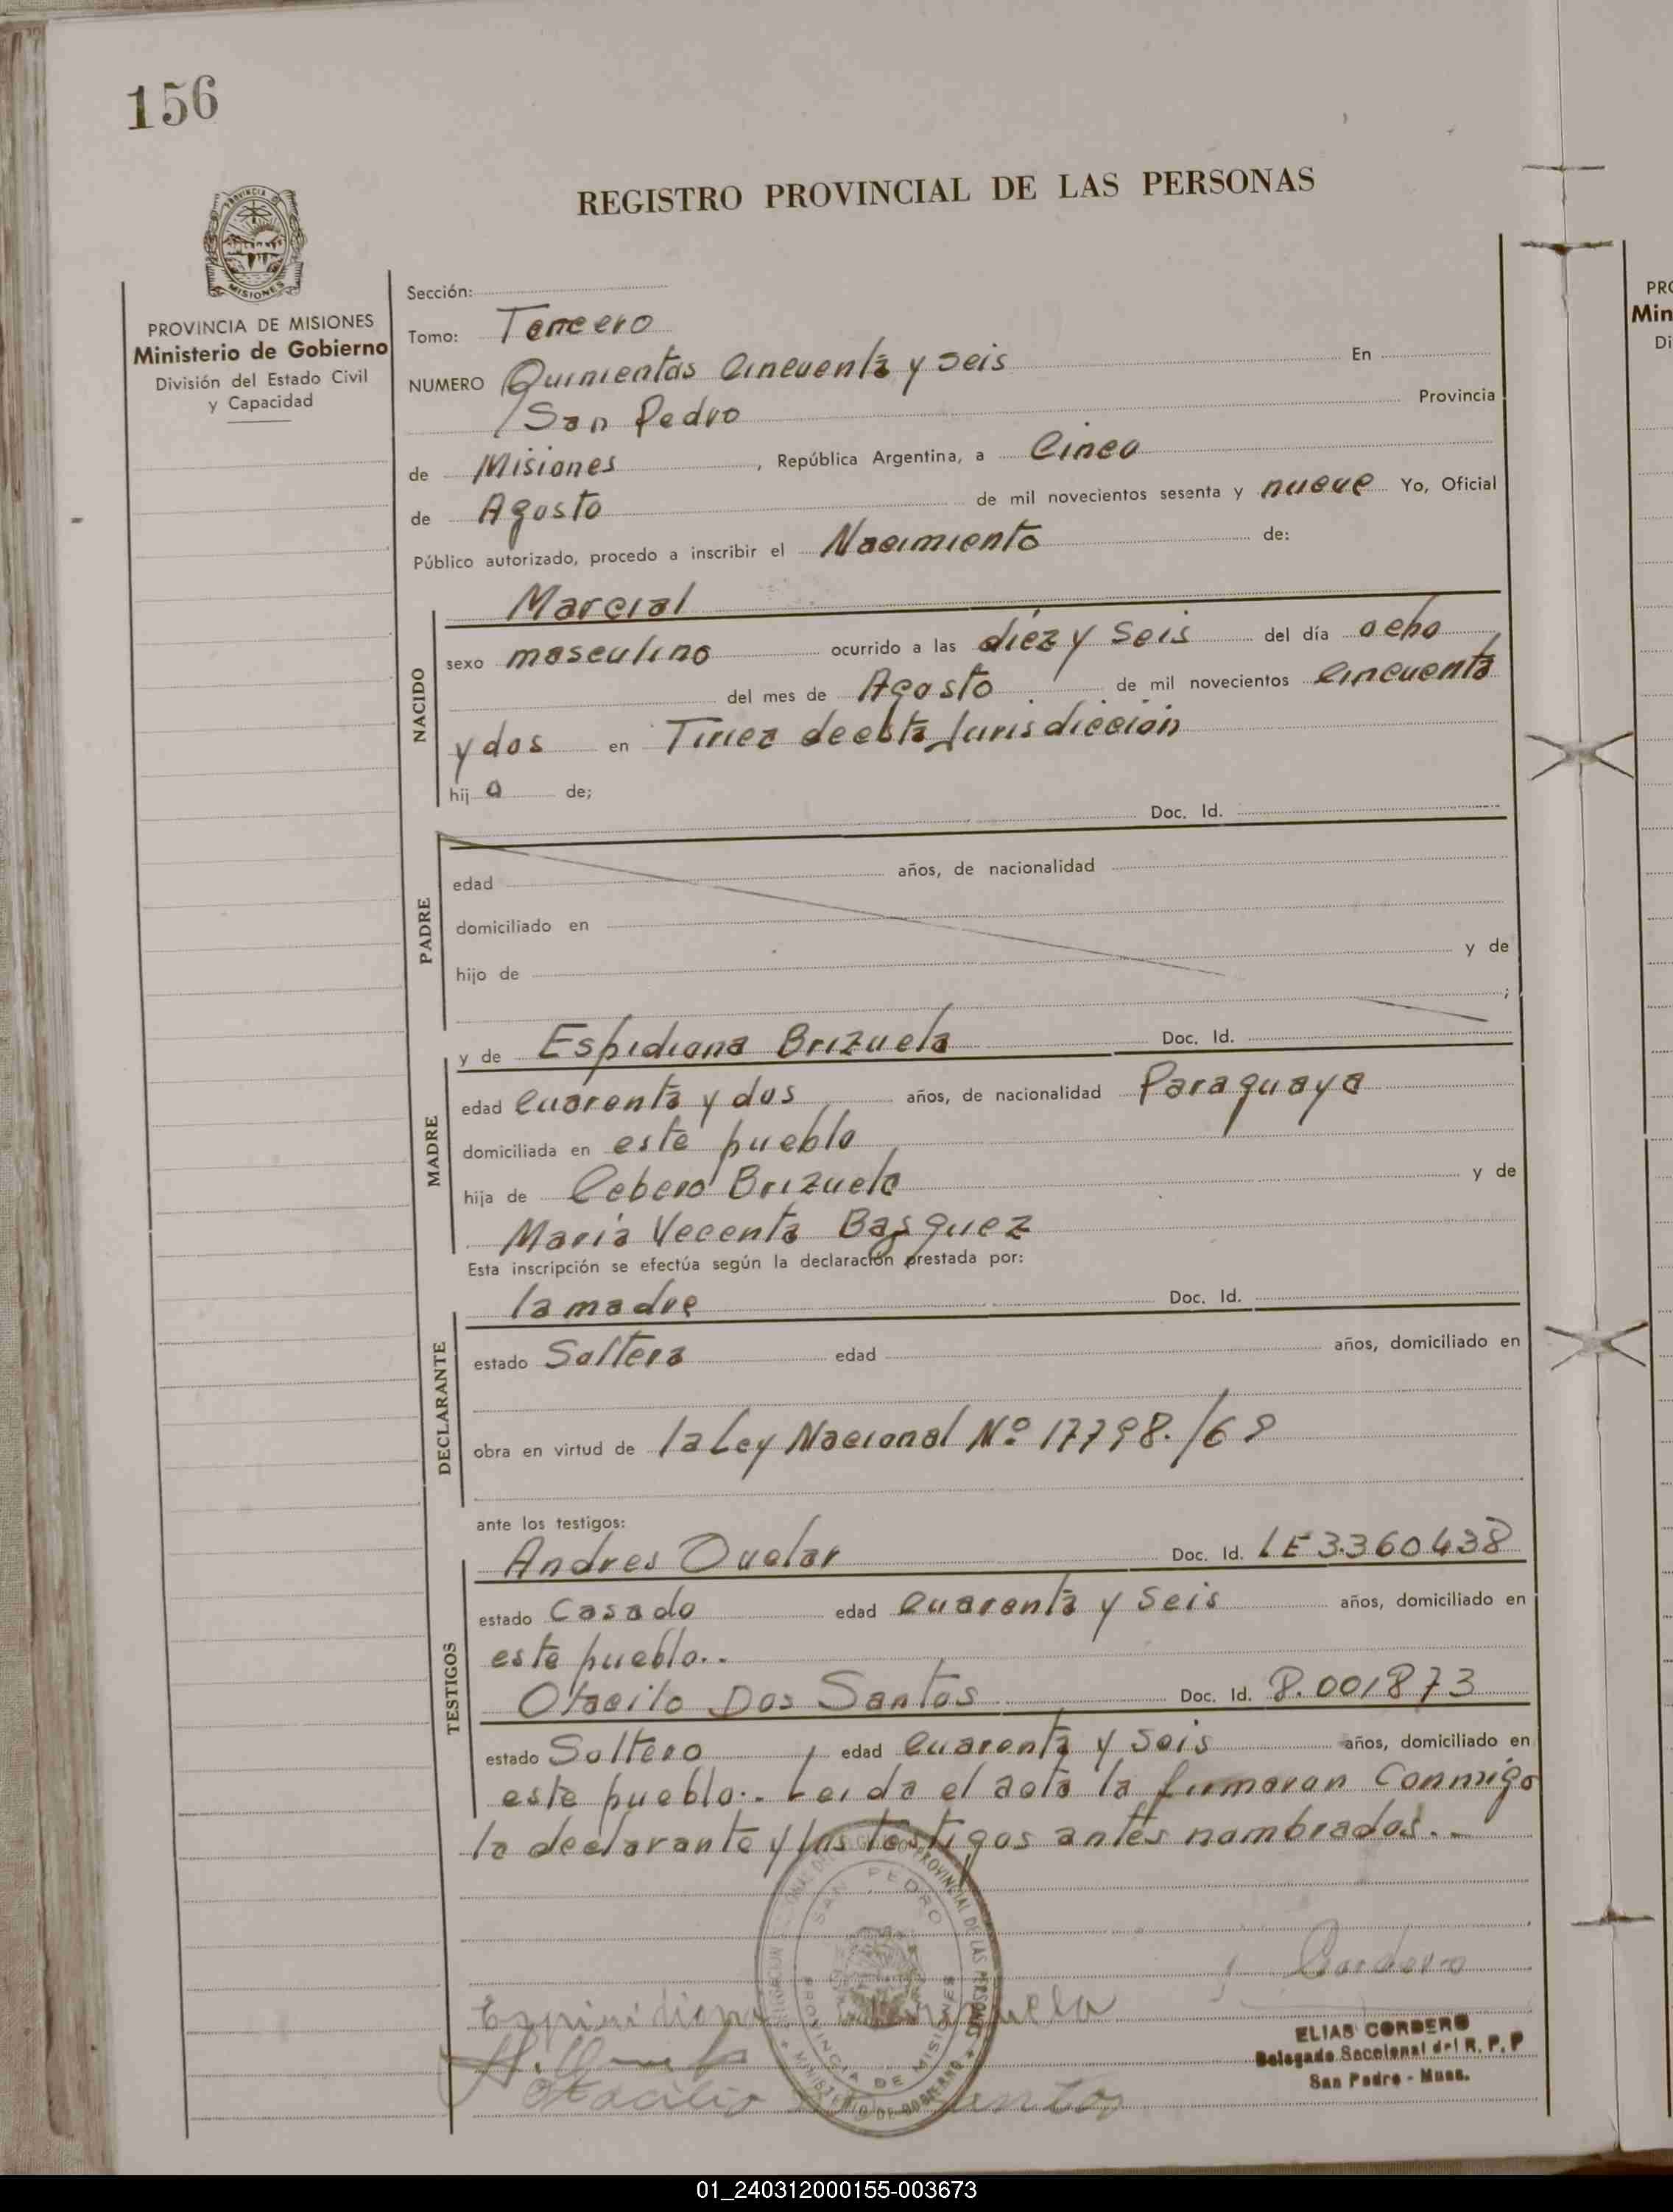 156
REGISTRO PROVINCIAL DE LAS PERSONAS
PROVINCIA
MISIONES
PROVINCIA DE MISIONES
Ministerio de Gobierno
División del Estado Civil
y Capacidad
Sección:
Tomo: Tercero
NUMERO Quinientas Cincuenta y seis En
San Pedro Provincia
de Misiones, República Argentina, a Cinco
de Agosto de mil novecientos sesenta y nueve Yo, Oficial
Público autorizado, procedo a inscribir el Nacimiento de:
NACIDO
Marcial
sexo masculino ocurrido a las diez y seis del día ocho
del mes de Agosto de mil novecientos Cincuenta
y dos en de esta Jurisdicción
hij o de;
PADRE
Doc. Id.
edad años, de nacionalidad
domiciliado en
hijo de y de
;
MADRE
y de Espidiana Brizuela Doc. Id.
edad Cuarenta y dos años, de nacionalidad Paraguaya
domiciliada en este pueblo
hija de Cebero Brizuela y de
Maria Vecenta Basquez
Esta inscripción se efectúa según la declaración prestada por:
DECLARANTE
la madre Doc. Id.
estado Soltera edad años, domiciliado en
obra en virtud de la Ley Nacional Nº 17798./68
ante los testigos:
TESTIGOS
Andres Ouelar Doc. Id. LE 3.360438
estado Casado edad Cuarenta y Seis años, domiciliado en
este pueblo..
Otacilo Dos Santos Doc. Id. 8.001873
estado Soltero edad Cuarenta y Seis años, domiciliado en
este pueblo.. Leida el acta la firmaran Conmigo
la declarante y los testigos antes nombrados..
SAN PEDRO
PROVINCIA DE MISIONES
PROVINCIAL DE LAS PERSONAS
MINISTERIO DE GOBIERNO
Cordero
ELIAS CORDERO
Delegado Seccional del R. P. P
San Pedro - Mnes.
PRO
Min
Di
01_240312000155-003673